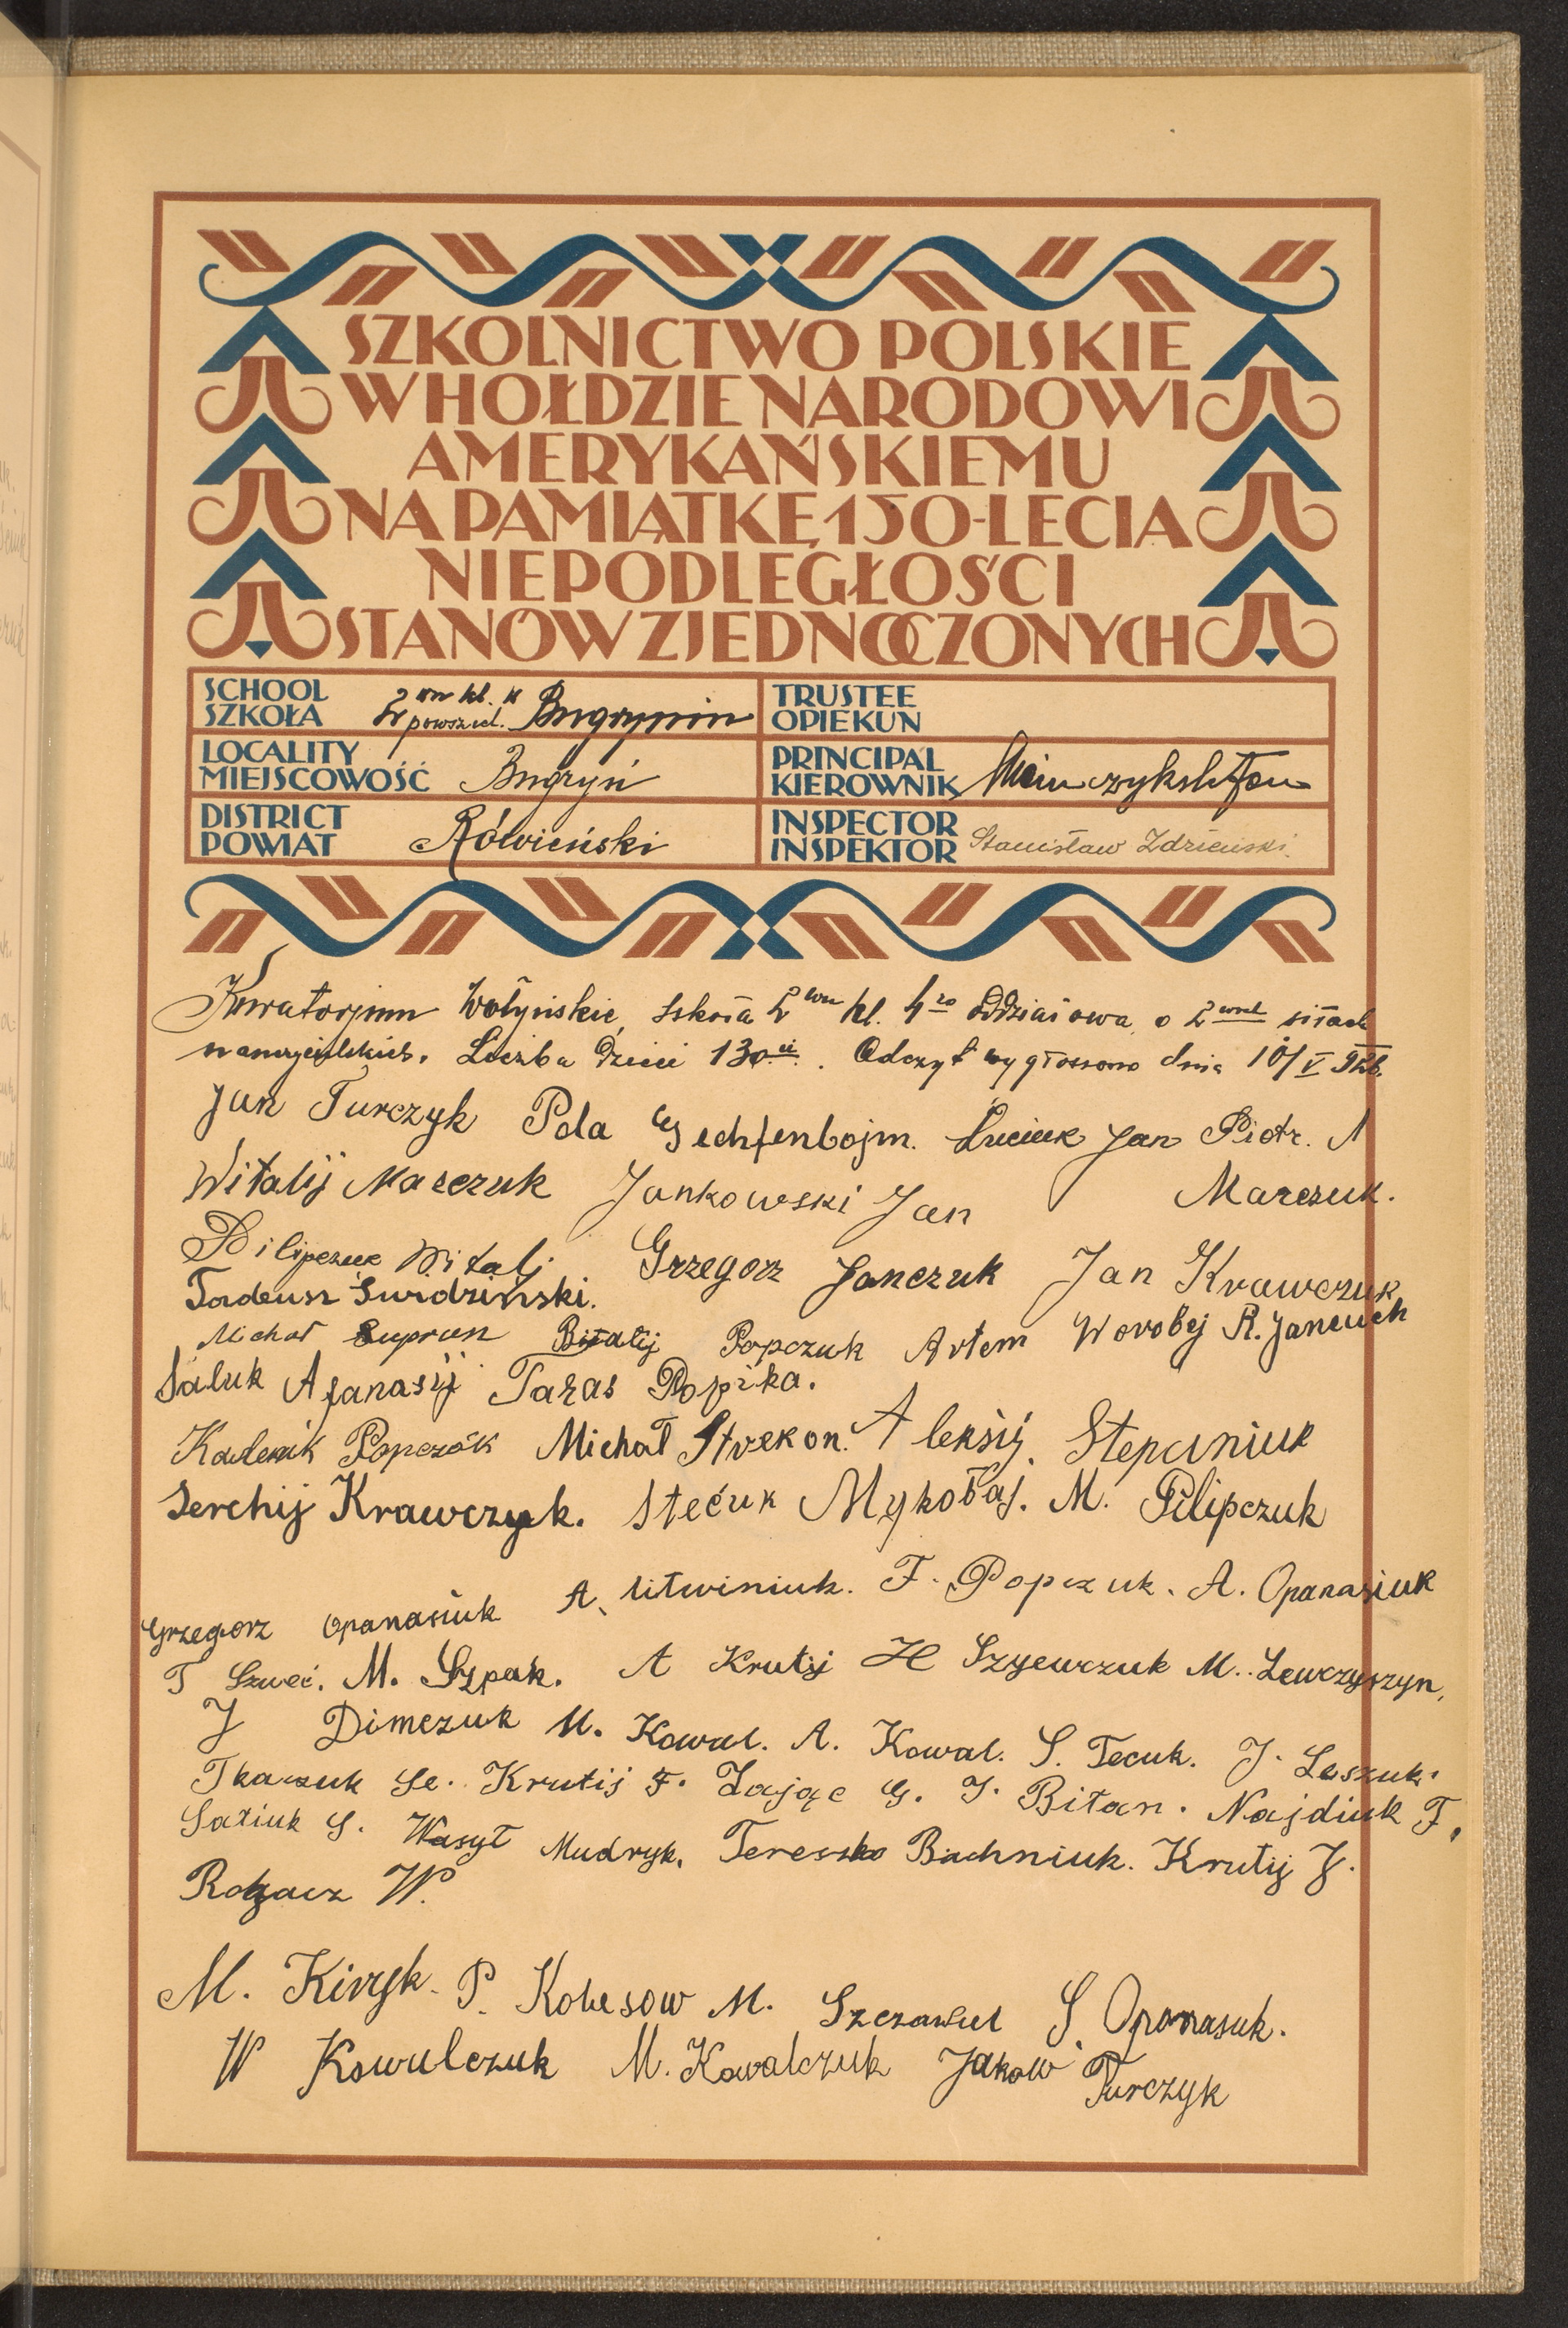 SZKOLNICTWO POLSKIE
W HOŁDZIE NARODOWI
AMERYKAŃSKIEMU
NA PAMIĄTKĘ 150-LECIA
NIEPODLEGŁOŚCI
STANÓW ZJEDNOCZONYCH
SCHOOL
SZKOŁA 2 wu kl. powszech.
TRUSTEE
OPIEKUN
LOCALITY
MIEJSCOWOŚĆ Bugryń
PRINCIPAL
KIEROWNIK
DISTRICT
POWIAT Rówieński
INSPECTOR
INSPEKTOR Stanisław Zdzieński.
Kuratorjum Wołyńskie, szkoła 2 wu kl. 4 ro oddziałowa, o 2 siłach
nauczycielskich. Liczba dzieci 130. Odczyt wygłoszono dnia 10/V 926.
Jan Turczyk Pola Gechtenbojm. Łuciuk Jan Piotr.
Witalij Marczuk Jankowski Jan Marczuk.
Pilipczuk Witalj Grzegorz Janczuk Jan Krawczuk
Tadeusz Surdziński.
Michał Suprun Bitalij Popczuk Artem Worobej R. Janeuch
Saluk Afanasij Taras Popika.
Kalenik Popczók Michał Strekon. Aleksij. Stepaniuk
Serchij Krawczyk. Stećuk Mykołaj. M. Pilipczuk
Grzegorz Opanasiuk A. Litwiniuk. F. Popczuk. A. Opanasiuk
T Szweć. M. Szpak. A Krutij H Szyewczuk M. Lewczyszyn,
J Dimczuk M. Kowal. A. Kowal. S. Tecuk. J. Leszuk.
Tkaczuk Se. Krutij F. Zając G. J. Bitan. Najdiuk F.
Satiuk S. Wasył Mudryk. Teresko Bachniuk. Krutij J.
Rohacz W.
M. Kiryk. P. Kolesow M. S. Opanasuk.
W Kowalczuk M. Kowalczuk Jakow Turczyk